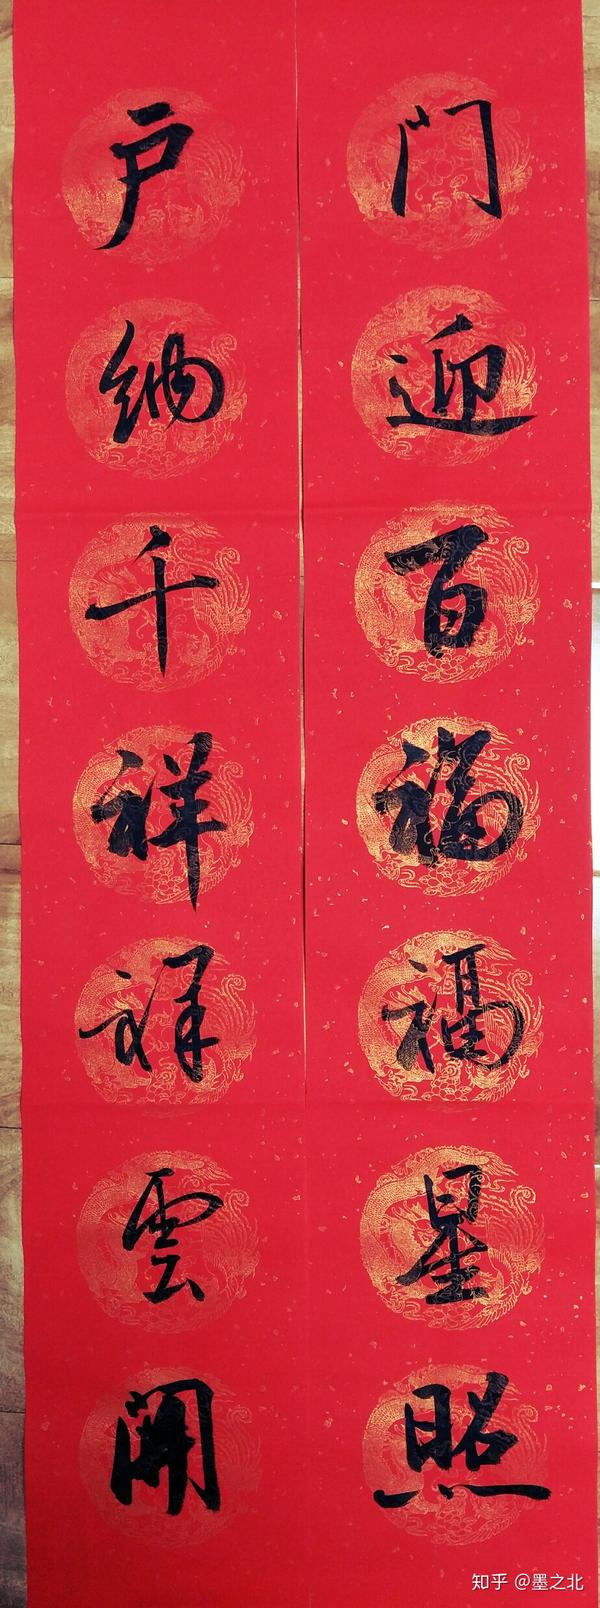 门迎百福福星照
户纳千祥祥雲開
知乎 @墨之北